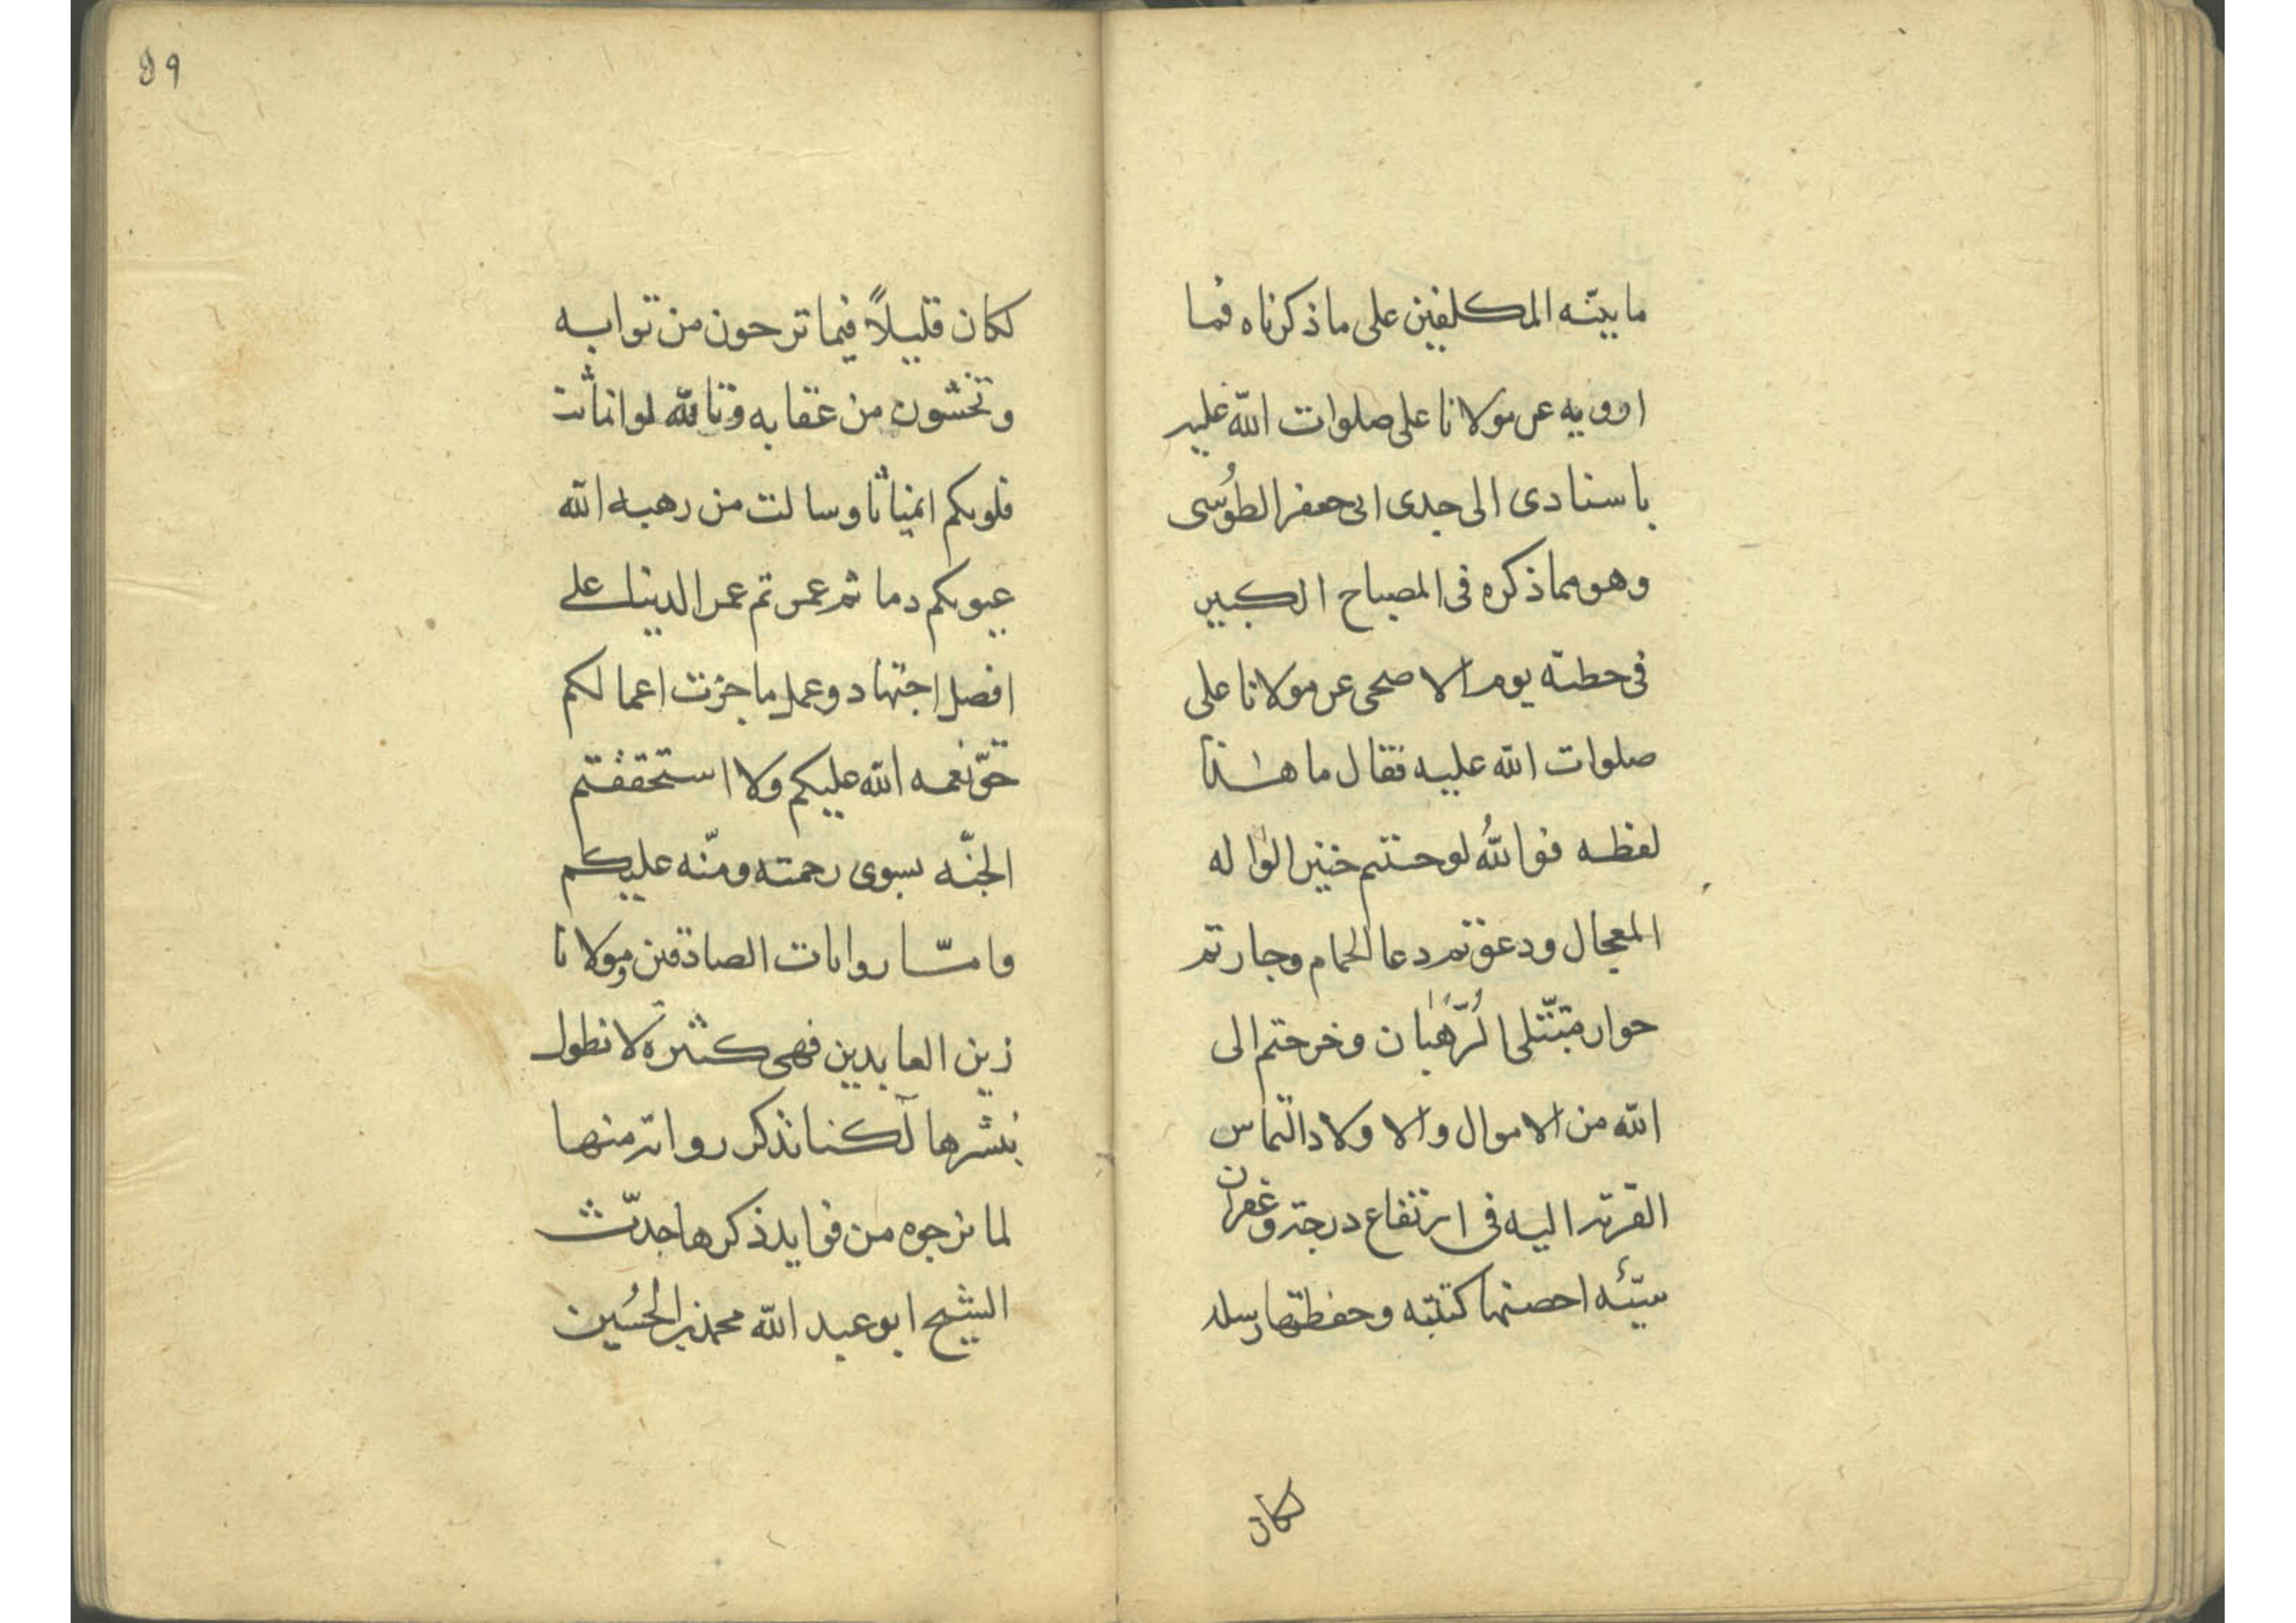 ما بيّنه المكلفين على ما ذكرناه فمما
ارويه عن مولانا على صلوات الله عليه
باسنادى الى جدى ابى جعفر الطوُسى
وهو مما ذكره فى المصباح الكبير
فى خطبة يوم الاضحى عن مولانا على
صلوات الله عليه فقال ما هذا
لفظه فوالله لو حننتم حنين الواله
المعجال ودعوتم دعا الحمام وجارتم
جوار متبتّلى الرّهبان وخرجتم الى
الله من الاموال والاولاد التماس
القربة اليه فى ارتفاع درجة وغفران
سيّئه احصتها كتبته وحفظتها رسله
لكان
٩٩
لكان قليلاً فيما ترجون من ثوابه
وتخشون من عقابه وتالله لو انماثت
قلوبكم انمياثا وسالت من رهبه الله
عيونكم دما ثم عمرتم عمر الدنيا على
افضل اجتهاد وعمل ما جزت اعمالكم
حقّ نعمه الله عليكم ولا استحققتم
الجنّه بسوى رحمته ومنّه عليكم
وامّا روايات الصادقين ومولانا
زين العابدين فهى كثيرة لا نطول
بنشرها لكنا نذكر رواية منها
لما نرجوه من فوايد ذكرها حدّث
الشيخ ابو عبد الله محمد بن الحسُين